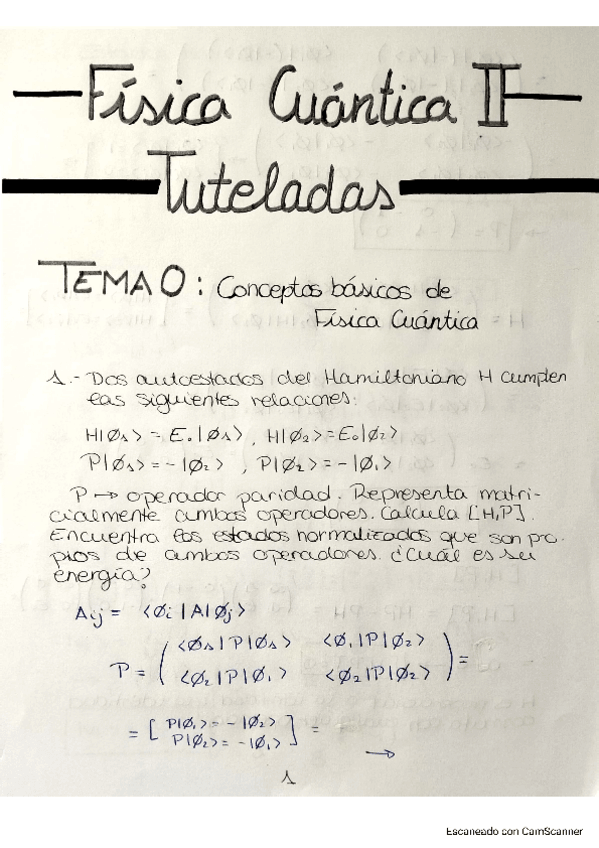 Física Cuántica II
Tuteladas
TEMA 0: Conceptos básicos de
Física Cuántica
1.- Dos autoestados del Hamiltoniano H cumplen
las siguientes relaciones:
H|Ø₁> = E₀|Ø₁>, H|Ø₂> = E₀|Ø₂>
P|Ø₁> = -|Ø₂>, P|Ø₂> = -|Ø₁>
P → operador paridad. Representa matri-
cialmente ambos operadores. Calcula [H,P].
Encuentra los estados normalizados que son pro-
pios de ambos operadores. ¿Cuál es su
energía?
Aij = <Øi|A|Øj>
P = ( <Ø₁|P|Ø₁> <Ø₁|P|Ø₂>
<Ø₂|P|Ø₁> <Ø₂|P|Ø₂> ) =
= [ P|Ø₁> = -|Ø₂>
P|Ø₂> = -|Ø₁> ] =
→
1
Escaneado con CamScanner